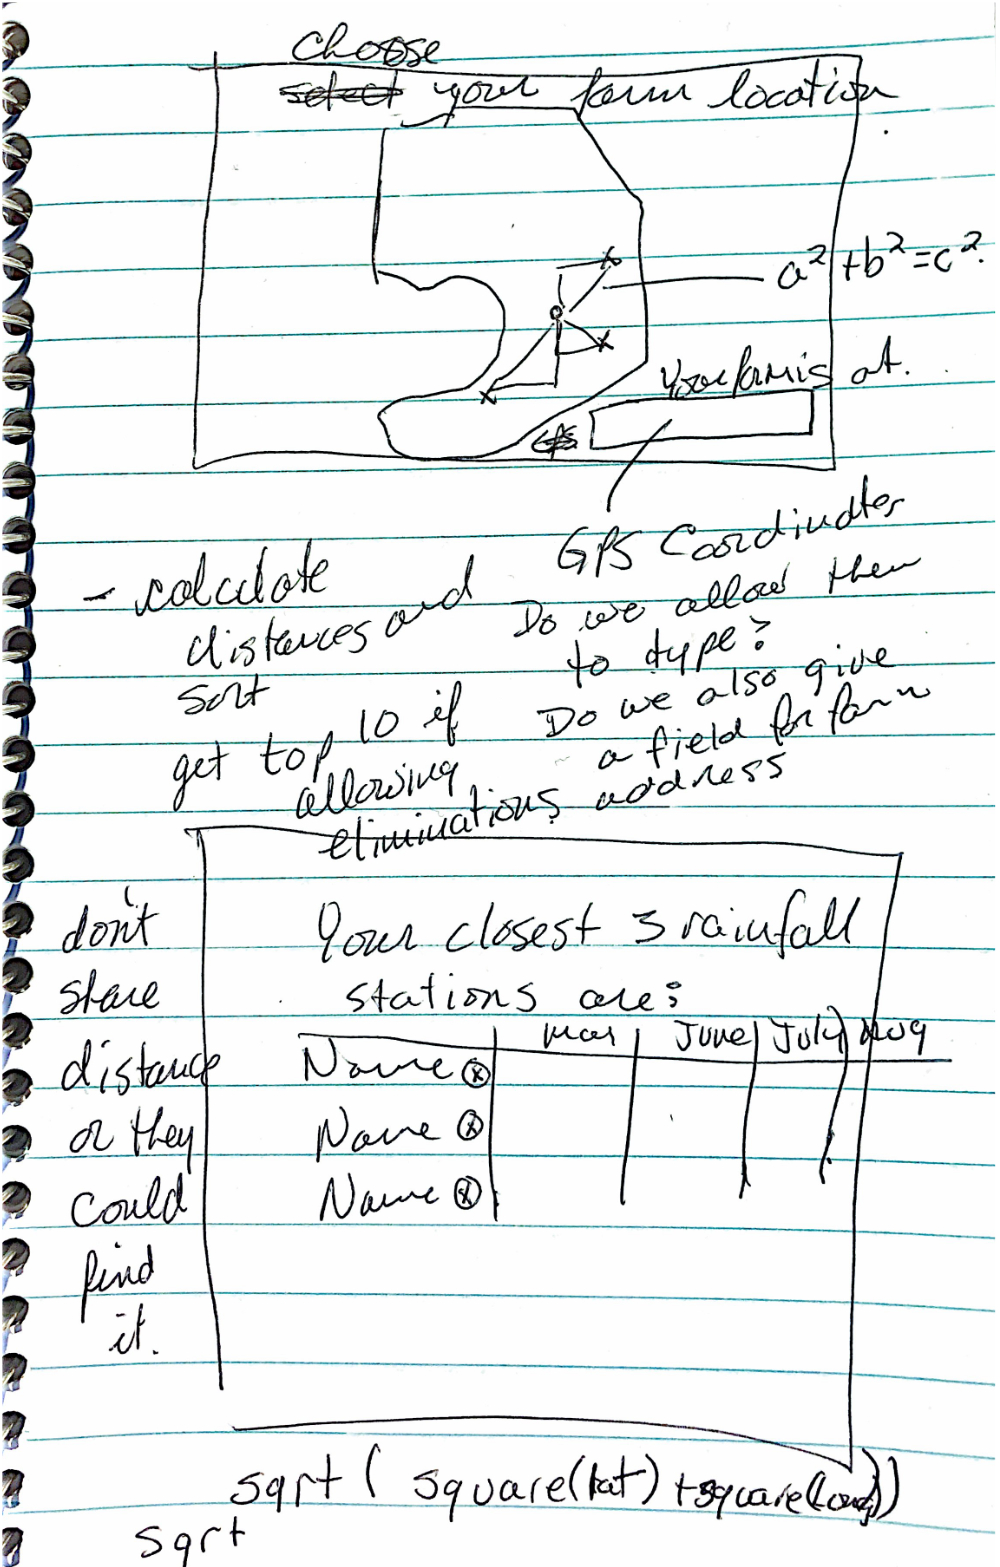 choose
select your farm location
a² + b² = c².
Your farm is at.
GPS
GPS Coordinates
Do we allow them
to type?
Do we also give
a field for farm
address
- calculate
distances and
sort
get top 10 if
allowing
eliminations
don't
share
distance
or they
could
find
it.
Your closest 3 rainfall
stations are:
May June July Aug
Name ⓧ
Name ⓧ
Name ⓧ
sqrt ( square(lat) + square(long))
sqrt